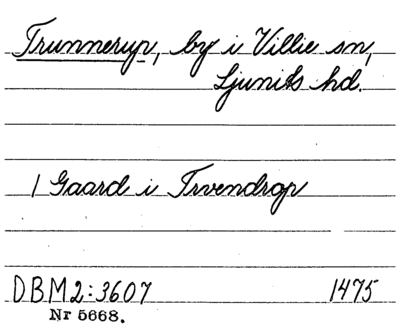 Trunnerup, by i Villie sn,
Ljunits hd.
1 Gaard i Trvendrop
DBM2:3607 1475
Nr 5668.